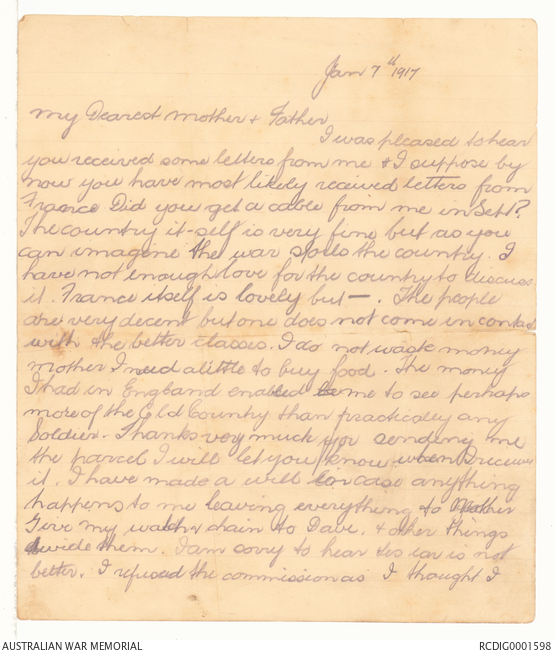 Jan 7th 1917
My Dearest Mother & Father
I was pleased to hear
you received some letters from me & I suppose by
now you have most likely received letters from
France Did you get a cable from me in Sept?
The country it-self is very fine but as you
can imagine the war spoils the country. I
have not enough love for the country to discuss
it. France itself is lovely but —. The people
are very decent but one does not come in contact
with the better classes. I do not want money
mother I need a little to buy food. The money
I had in England enabled me to see perhaps
more of the Old Country than practically any
Soldier. Thanks very much for sending me
the parcel I will let you know when I receive
it. I have made a will in case anything
happens to me leaving everything to Mother
Give my watch & chain to Dave. & other things
divide them. I am sorry to hear Les ear is not
better. I refused the commission as I thought I
AUSTRALIAN WAR MEMORIAL
RCDIG0001598